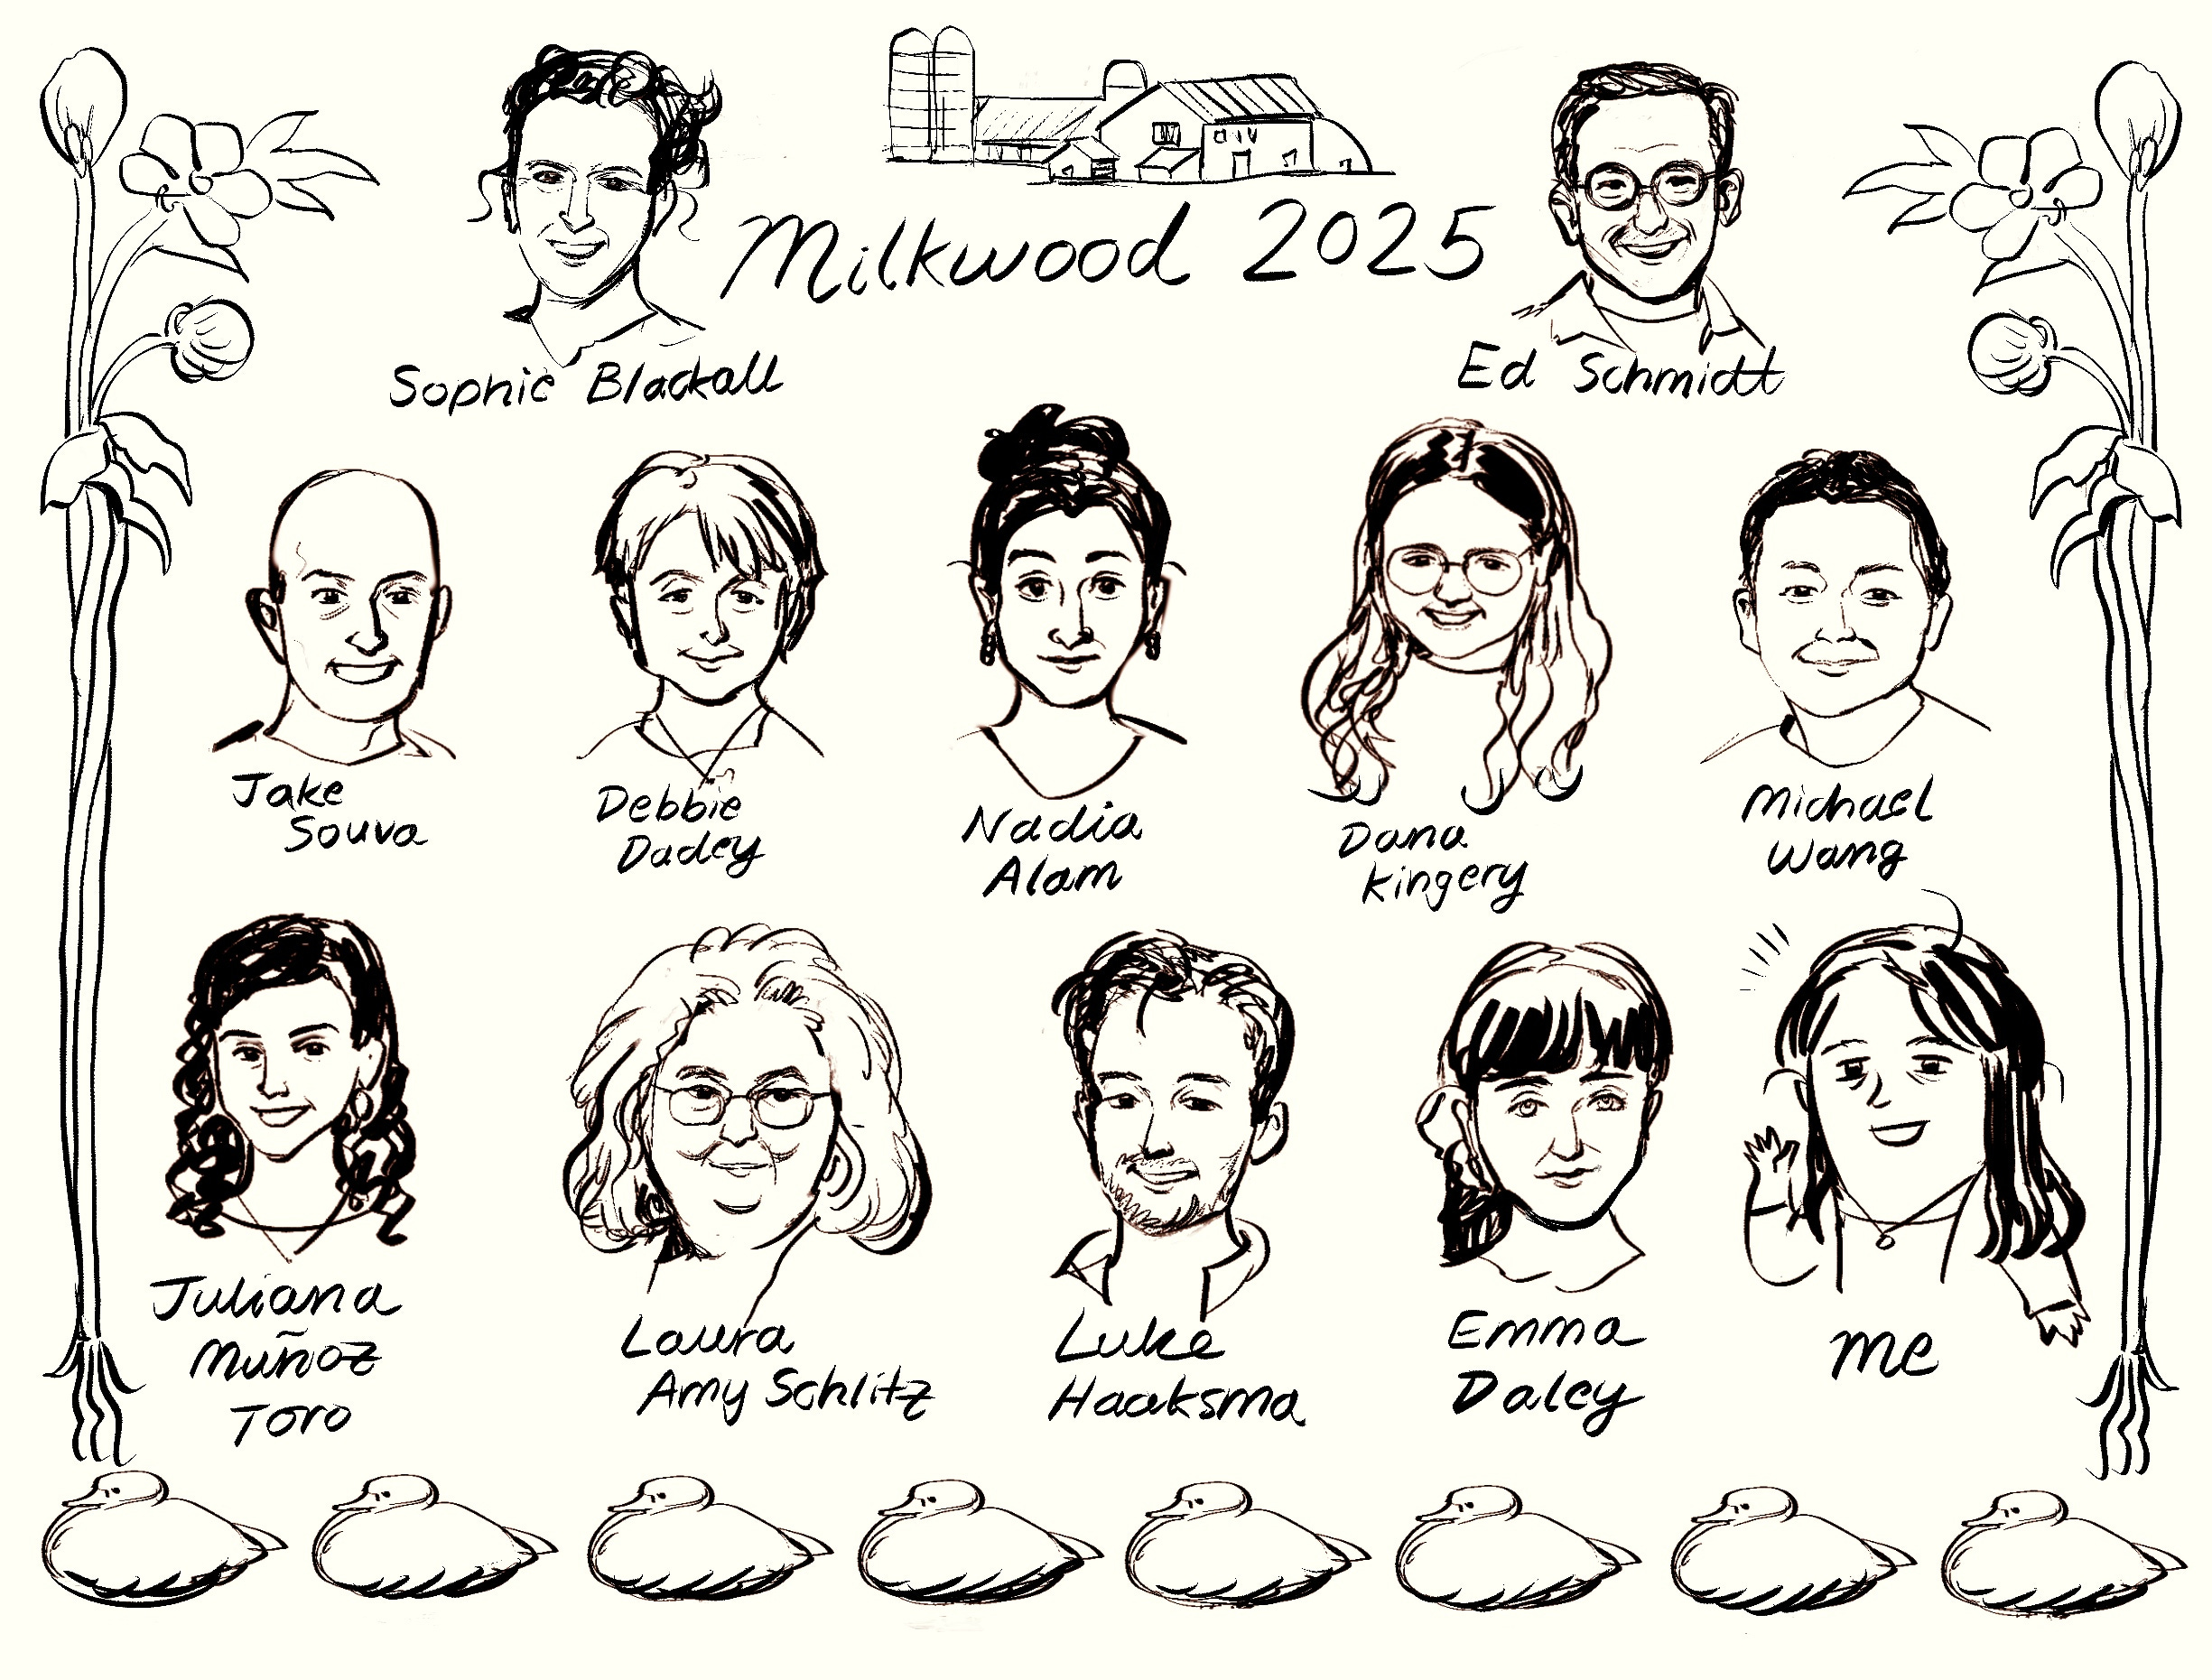 Milkwood 2025
Sophie Blackall
Ed Schmidt
Jake
Souva
Debbie
Dadey
Nadia
Alam
Dana
Kingery
Michael
Wang
Juliana
Muñoz
Toro
Laura
Amy Schlitz
Luke
Haaksma
Emma
Daley
me